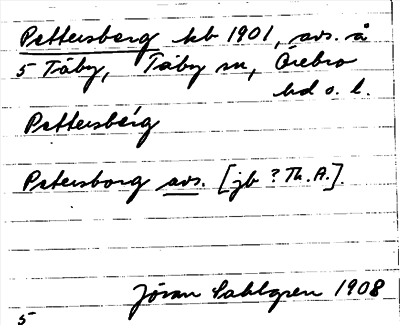 Pettersberg tcb 1901, avs. å
5 Täby, Täby sn, Örebro
hd o. l.
Pettersbérg
Petersborg avs. [jb ? Th. A.].
Jöran Sahlgren 1908
5